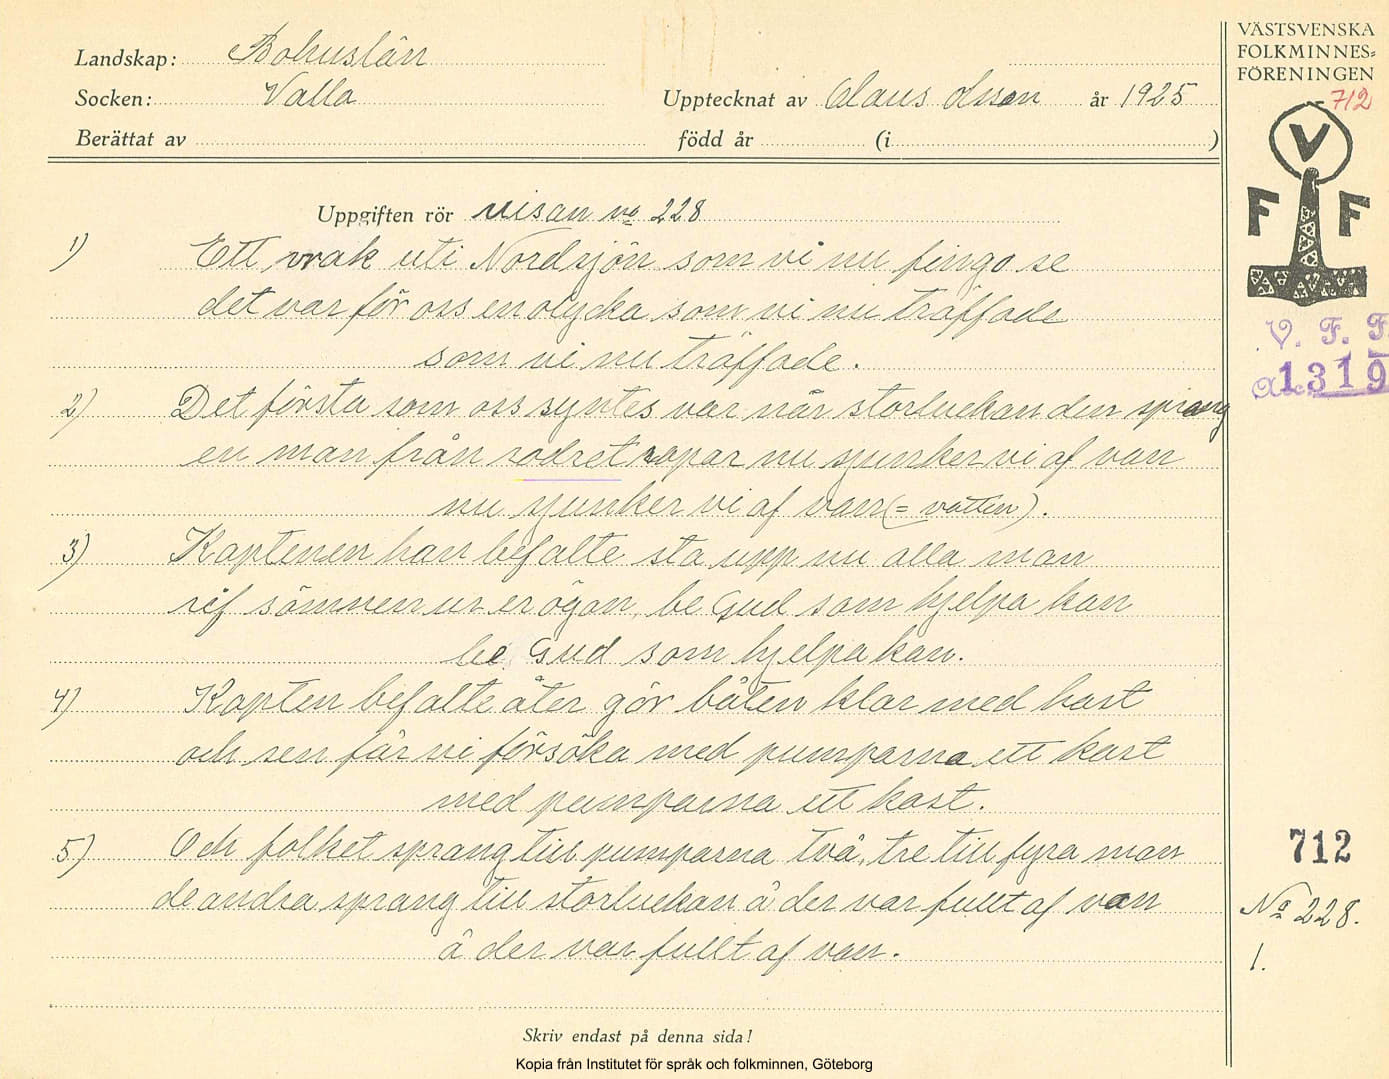 Landskap: Bohuslän
Socken: Valla
Upptecknat av Claus Olsson år 1925
Berättat av
född år (i )
Uppgiften rör visan No 228
1) Ett vrak uti Nordsjön som vi nu fingo se
det var för oss en olycka som vi nu träffade
som vi nu träffade.
2) Det första som oss syntes var när storluckan den sprang
en man från rodret ropar nu sjunker vi af van
nu sjunker vi af van (= vatten).
3) Kaptenen han befalte stå upp nu alla man
rif sömnen ur er ögon, be Gud som hjelpa kan
be Gud som hjelpa kan.
4) Kapten befalte åter gör båten klar med hast
och sen får vi försöka med pumparna ett kast
med pumparna ett kast.
5) Och folket sprang till pumparna två, tre till fyra man
de andra sprang till storluckan å der var fullt af van
å der var fullt af van.
Skriv endast på denna sida!
Kopia från Institutet för språk och folkminnen, Göteborg
VÄSTSVENSKA
FOLKMINNES=
FÖRENINGEN
712
V
F F
V. F. F.
Acc. 1319
712
No 228.
1.